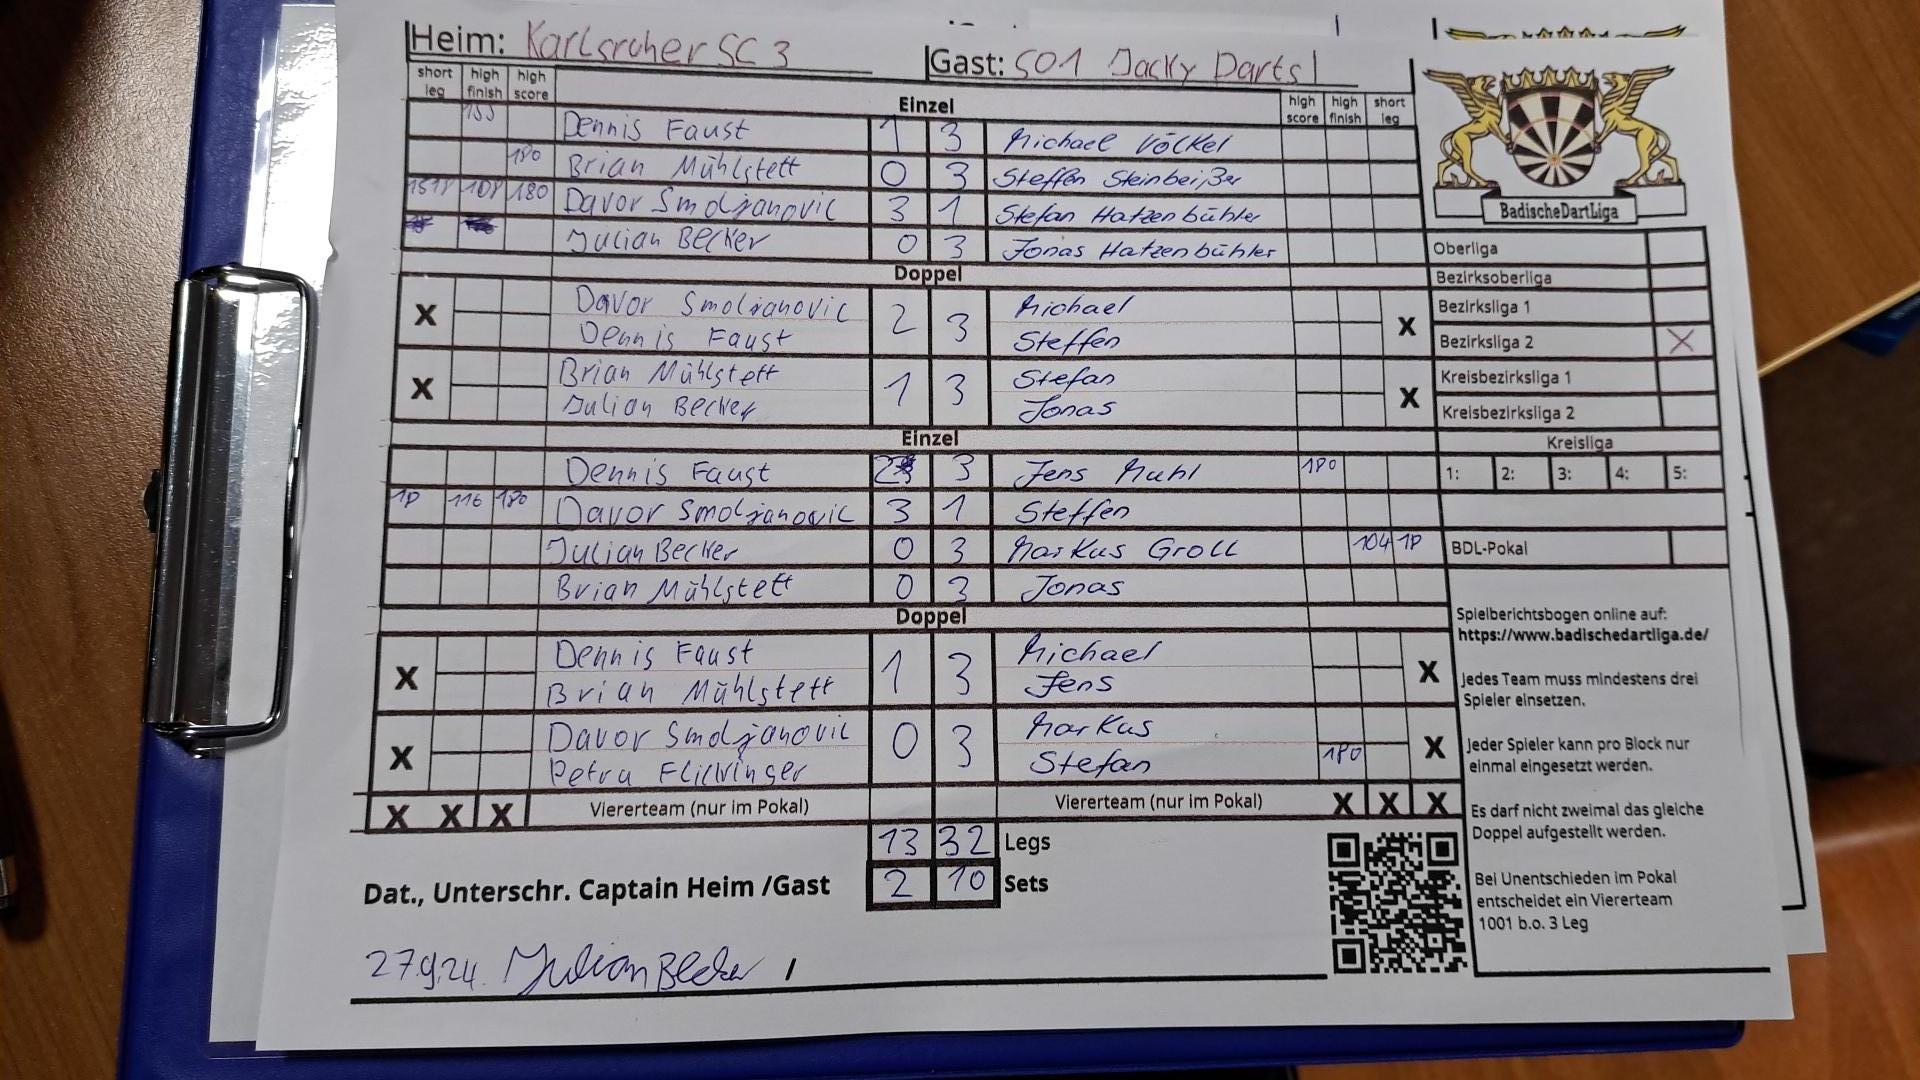 Heim: Karlsruher SC 3 Gast: 501 Jacky Darts 1
short leg high finish high score Einzel high score high finish short leg
Dennis Faust 1 3 Michael Völkel
180 Brian Mühlstett 0 3 Steffen Steinbeißer
108 180 Davor Smoljanovic 3 1 Stefan Hatzenbühler
Julian Becker 0 3 Jonas Hatzenbühler
Doppel
X Davor Smoljanovic 2 3 Michael X
Dennis Faust Steffen
X Brian Mühlstett 1 3 Stefan X
Julian Becker Jonas
Einzel
Dennis Faust 2 3 Jens Muhl 180
18 116 180 Davor Smoljanovic 3 1 Steffen
Julian Becker 0 3 Markus Groll 104 18
Brian Mühlstett 0 3 Jonas
Doppel
X Dennis Faust 1 3 Michael X
Brian Mühlstett Jens
X Davor Smoljanovic 0 3 Markus X
Petra Stefan 180
X X X Viererteam (nur im Pokal) Viererteam (nur im Pokal) X X X
13 32 Legs
Dat., Unterschr. Captain Heim /Gast 2 10 Sets
27.9.24. Julian Becker /
BadischeDartLiga
Oberliga
Bezirksoberliga
Bezirksliga 1
Bezirksliga 2 X
Kreisbezirksliga 1
Kreisbezirksliga 2
Kreisliga
1: 2: 3: 4: 5:
BDL-Pokal
Spielberichtsbogen online auf:
https://www.badischedartliga.de/
Jedes Team muss mindestens drei
Spieler einsetzen.
Jeder Spieler kann pro Block nur
einmal eingesetzt werden.
Es darf nicht zweimal das gleiche
Doppel aufgestellt werden.
Bei Unentschieden im Pokal
entscheidet ein Viererteam
1001 b.o. 3 Leg